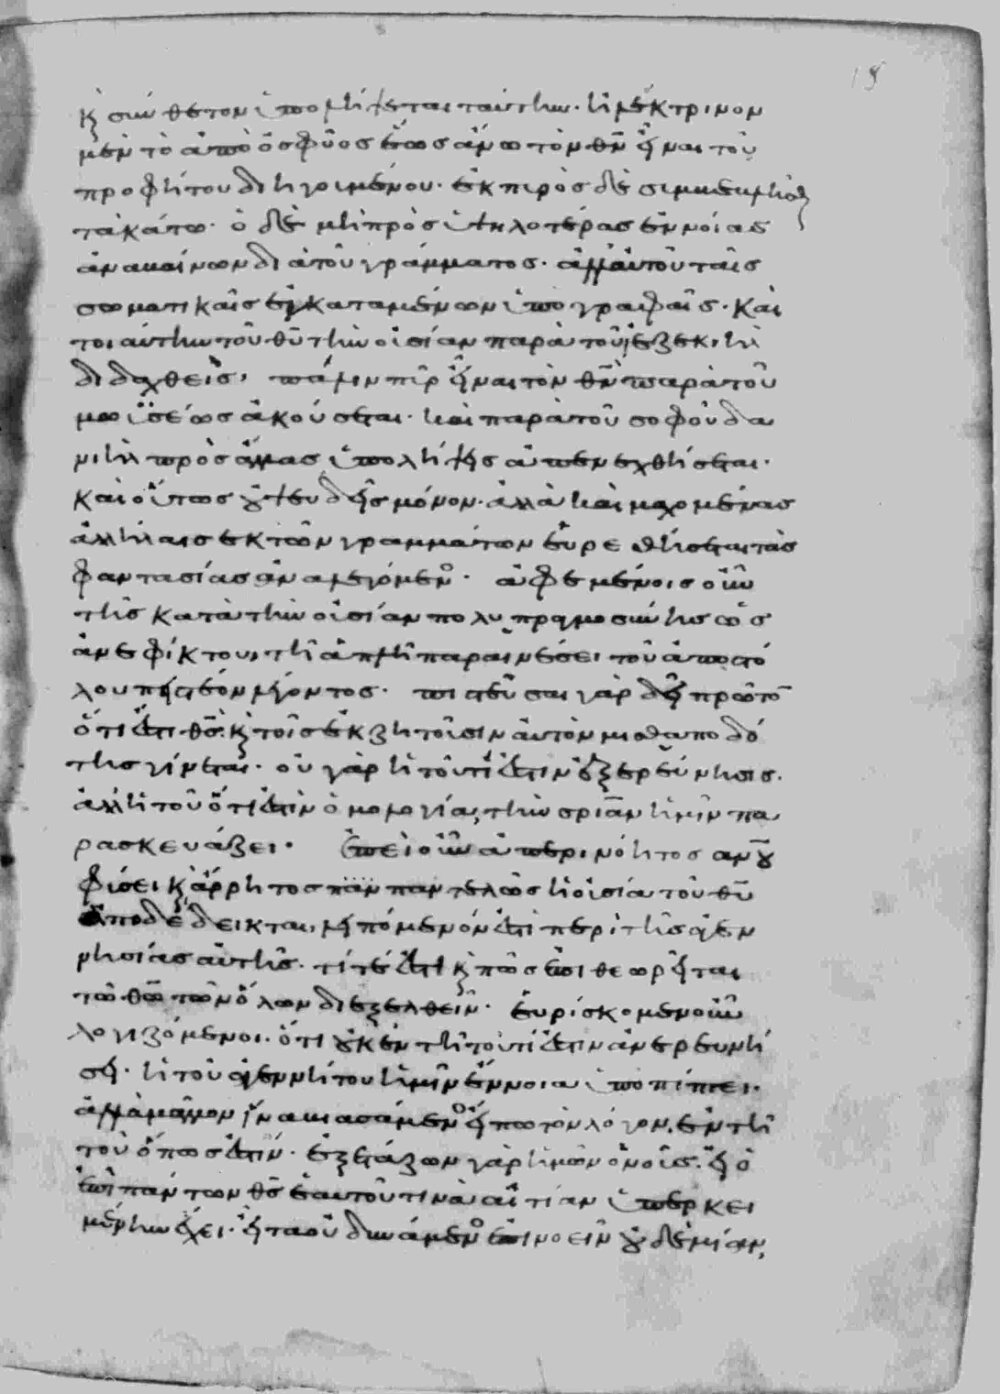 κ̣ σύνθετον ὑπολήψεται ταύτην. ἠλέκτρινον
μὲν τὸ ἀπὸ ὀσφύος ἕως ἄνω τὸν θν̄ εἶναι τοῦ
προφήτου διηγουμένου. ἐκ πυρὸς δὲ συγκεῖσθαι
τὰ κάτω. ὁ δὲ μὴ πρὸς ὑψηλοτέρας ἐννοίας
ἀναβαίνων διὰ τοῦ γράμματος. ἀλλ' αὐτοῦ ταῖς
σωματικαῖς ἐγκαταμένων ὑπογραφαῖς. καὶ
τοιαύτην τοῦ θῡ τὴν οὐσίαν παρὰ τοῦ ἰεζεκιὴλ
διδαχθεὶς, πάλιν πῦρ εἶναι τὸν θν̄ παρὰ τοῦ
μωϋσέως ἀκούσεται. καὶ παρὰ τοῦ σοφοῦ δα
νιὴλ πρὸς ἄλλας ὑπολήψεις ἀπενεχθήσεται.
καὶ οὕτως οὐ ψευδεῖς μόνον. ἀλλὰ καὶ μαχομένας
ἀλλήλαις ἐκ τῶν γραμμάτων εὑρεθήσεται τὰς
φαντασίας ἀναλεγόμενος. ἀφεμένοις οὖν
τῆς κατὰ τὴν οὐσίαν πολυπραγμοσύνης ὡς
ἀνεφίκτου, τῇ ἁπλῇ παραινέσει τοῦ ἀποστό
λου πειστέον λέγοντος. πιστεῦσαι γὰρ δεῖ πρῶτον
ὅτι ἔστι θς̄. κ̣ τοῖς ἐκζητοῦσιν αὐτὸν μισθαποδό
της γίνεται. οὐ γὰρ ἡ τοῦ τί ἐστιν ἐξερεύνησις.
ἀλλ' ἡ τοῦ ὅτι ἐστὶν ὁμολογία, τὴν σρίαν ἡμῖν πα
ρασκευάζει. ἐπεὶ οὖν ἀπερινόητος ἀνου
φύσει κ̣ ἄρρητος παντελῶς ἡ οὐσία τοῦ θῡ
ἀποδέδεικται, λειπόμενόν ἐστι περὶ τῆς ἀγεν
νησίας αὐτῆς. τί τέ ἐστι κ̣ πῶς ἐπιθεωρεῖται
τῶ θω̄ τῶν ὅλων διεξελθεῖν. εὑρίσκομεν οὖν
λογιζόμενοι. ὅτι οὐκ ἐν τῆ τοῦ τί ἐστιν ἀνερευνή
σει. ἡ τοῦ ἀγεννήτου ἡμῖν ἔννοια ὑποπίπτει.
ἀλλὰ μᾶλλον ἵνα βιασάμενος εἴπω τὸν λόγον, ἐν τῆ
τοῦ ὅπως ἐστίν. ἐξετάζων γὰρ ἡμῶν ὁ νοῦς. εἰ ὁ
ἐπὶ πάντων θς̄ ἑαυτοῦ τινὰ αἰτίαν ὑπερκει
μένην ἔχει. εἶτα οὐ δυνάμενος ἐπινοεῖν οὐδεμίαν,